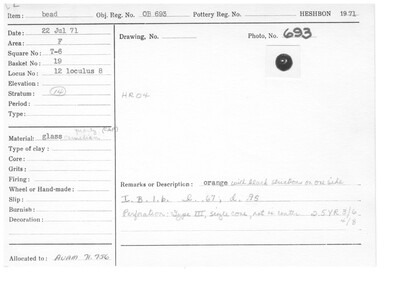 Item: bead Obj. Reg. No. OB 693 Pottery Reg. No. HESHBON 1971
Date: 22 Jul 71
Area: F
Square No: T-6
Basket No: 19
Locus No: 12 loculus 8
Elevation:
Stratum: 14
Period:
Type:
Material: glass
Type of clay:
Core:
Grits:
Firing:
Wheel or Hand-made:
Slip:
Burnish:
Decoration:
Allocated to: AUAM H.736
Drawing, No. Photo, No. 693
HR04
Remarks or Description: orange with black striations on one side
I. B. 1. b. D. .67, L. .75
Perforation: Type III, single cone, not in center 2.5YR 3/6